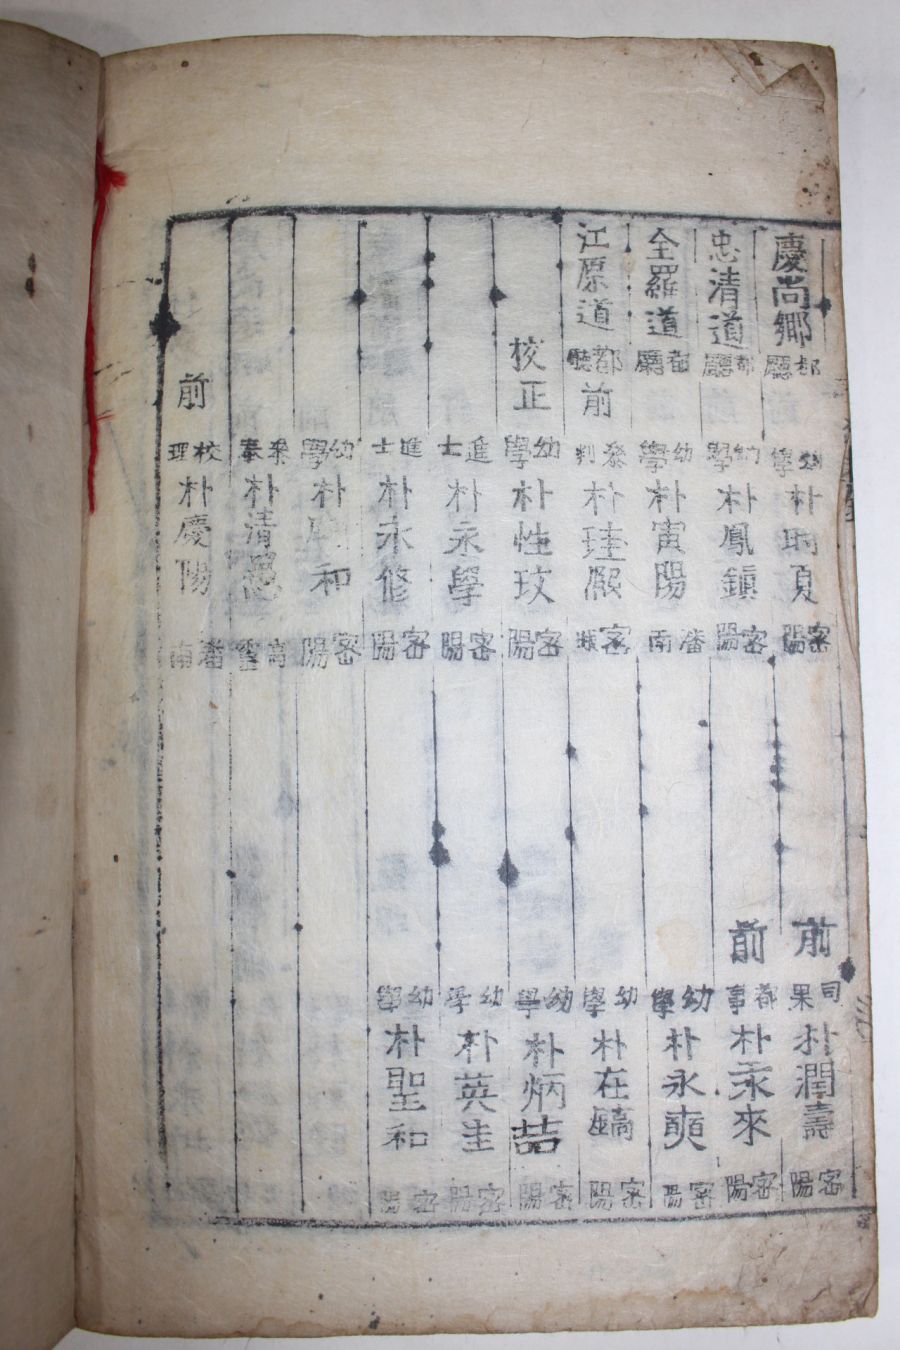 慶尚鄉都廳 幼學 朴 夏 密陽 前司果 朴潤壽 密陽
忠清道都廳 幼學 朴鳳鎮 密陽 前都事 朴來 密陽
全羅道都廳 幼學 朴寅陽 潘南 幼學 朴永奭 密陽
江原道都廳 前 判 朴珪熙 密城 幼學 朴在鎬 密陽
校正 幼學 朴性玟 密陽 幼學 朴炳喆 密陽
進士 朴永學 密陽 幼學 朴英圭 密陽
進士 朴永修 密陽 幼學 朴聖和 密陽
幼學 朴 和 密陽
參奉 朴清 高靈
前校理 朴慶陽 潘南